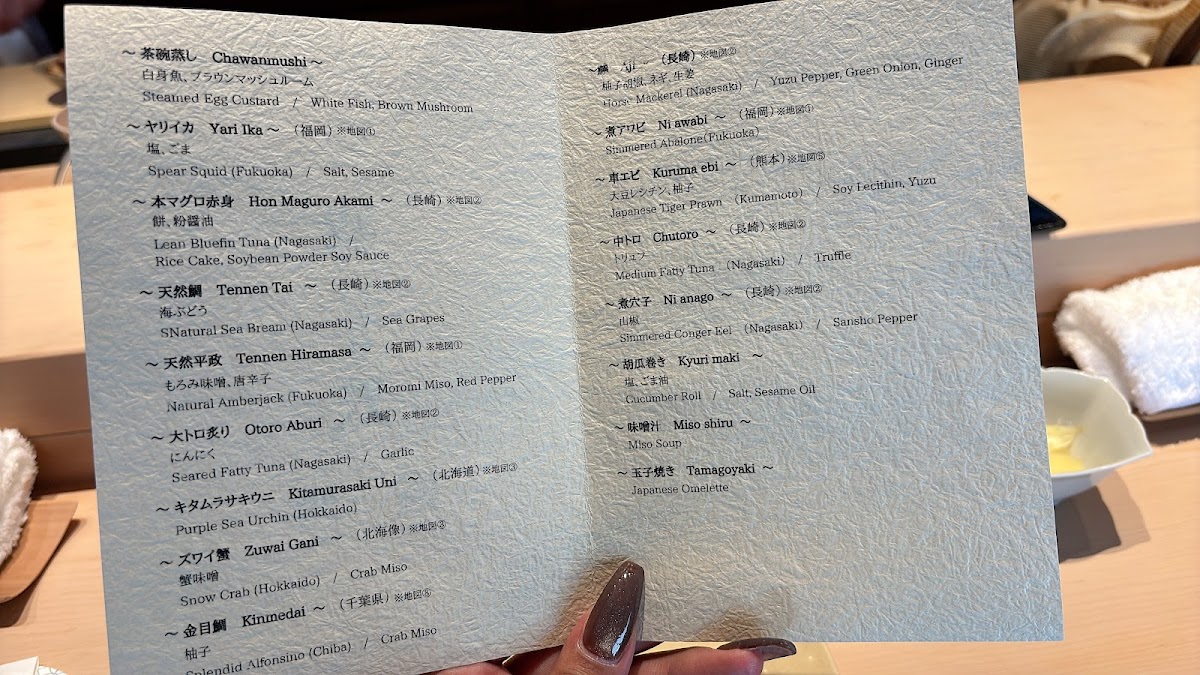 ～ 茶碗蒸し Chawanmushi ～
白身魚、ブラウンマッシュルーム
Steamed Egg Custard / White Fish, Brown Mushroom
～ ヤリイカ Yari Ika ～ （福岡）※地図①
塩、ごま
Spear Squid (Fukuoka) / Salt, Sesame
～ 本マグロ赤身 Hon Maguro Akami ～ （長崎）※地図②
餅、粉醤油
Lean Bluefin Tuna (Nagasaki) /
Rice Cake, Soybean Powder Soy Sauce
～ 天然鯛 Tennen Tai ～ （長崎）※地図②
海ぶどう
SNatural Sea Bream (Nagasaki) / Sea Grapes
～ 天然平政 Tennen Hiramasa ～ （福岡）※地図①
もろみ味噌、唐辛子
Natural Amberjack (Fukuoka) / Moromi Miso, Red Pepper
～ 大トロ炙り Otoro Aburi ～ （長崎）※地図②
にんにく
Seared Fatty Tuna (Nagasaki) / Garlic
～ キタムラサキウニ Kitamurasaki Uni ～ （北海道）※地図③
Purple Sea Urchin (Hokkaido)
～ ズワイ蟹 Zuwai Gani ～ （北海像）※地図③
蟹味噌
Snow Crab (Hokkaido) / Crab Miso
～ 金目鯛 Kinmedai ～ （千葉県）※地図④
柚子
Splendid Alfonsino (Chiba) / Crab Miso
～ 鯵 Aji ～ （長崎）※地図②
柚子胡椒、ネギ、生姜
Horse Mackerel (Nagasaki) / Yuzu Pepper, Green Onion, Ginger
～ 煮アワビ Ni awabi ～ （福岡）※地図①
Simmered Abalone(Fukuoka)
～ 車エビ Kuruma ebi ～ （熊本）※地図⑤
大豆レシチン、柚子
Japanese Tiger Prawn （Kumamoto） / Soy Lecithin, Yuzu
～ 中トロ Chutoro ～ （長崎）※地図②
トリュフ
Medium Fatty Tuna （Nagasaki） / Truffle
～ 煮穴子 Ni anago ～ （長崎）※地図②
山椒
Simmered Conger Eel （Nagasaki） / Sansho Pepper
～ 胡瓜巻き Kyuri maki ～
塩、ごま油
Cucumber Roll / Salt, Sesame Oil
～ 味噌汁 Miso shiru ～
Miso Soup
～ 玉子焼き Tamagoyaki ～
Japanese Omelette